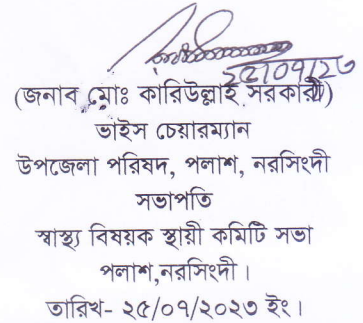 ২৫/০৭/২৩
(জনাব মোঃ কারিউল্লাহ সরকারী)
ভাইস চেয়ারম্যান
উপজেলা পরিষদ, পলাশ, নরসিংদী
সভাপতি
স্বাস্থ্য বিষয়ক স্থায়ী কমিটি সভা
পলাশ,নরসিংদী ।
তারিখ- ২৫/০৭/২০২৩ ইং।